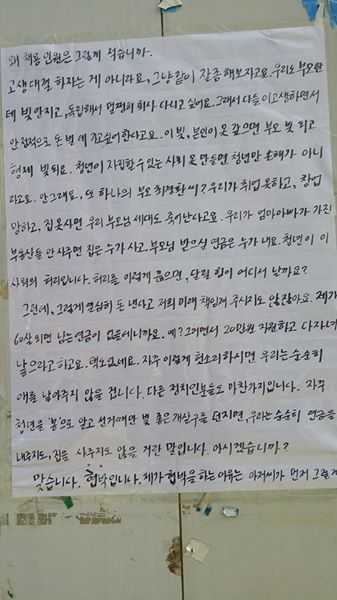 왜 채용 인원은 그렇게 적습니까.
고생대결 하자는 게 아니라요, 그냥 같이 잘좀 해보자고요. 우리도 부모한
테 빚 안지고, 독립해서 멀쩡히 회사 다니고 싶어요. 그래서 다들 이 고생하면서
안정적으로 돈 벌 데 가고싶어 한다고요. 이 빚, 본인이 못 갚으면 부모 빚 되고
형제 빚 되요. 청년이 자립할 수 있는 사회 못 만들면 청년만 손해가 아니
라고요. 안그래요, 또 하나의 부모 최경환 씨? 우리가 취업 못하고, 창업
망하고, 집 못사면 우리 부모님 세대도 죽어난다고요. 우리가 엄마아빠가 가진
부동산을 안 사주면 집은 누가 사고. 부모님 받으실 연금은 누가 내요. 청년이 이
사회의 허리입니다. 허리를 이렇게 끊으면, 단전 힘이 어디서 납니까?
그런데, 그렇게 열심히 돈 낸다고 저희 미래 책임져 주시지도 않잖아요. 제가
60살 되면 나는 연금이 없을테니까요. 예? 그러면서 20만원 지원하고 다자녀
낳으라고 하고요. 턱도 없네요. 자꾸 이렇게 헛소리하시면 우리는 순순히
애를 낳아주지 않을 겁니다. 다른 정치인분들도 마찬가지입니다. 자꾸
청년을 '봉'으로 알고 선거때만 빛 좋은 개살구를 던지면, 우리는 순순히 연금을
내주지도, 집을 사주지도 않을 거란 말입니다. 아시겠습니까?
맞습니다. 협박입니다. 제가 협박을 하는 이유는 아저씨가 먼저 그렇게